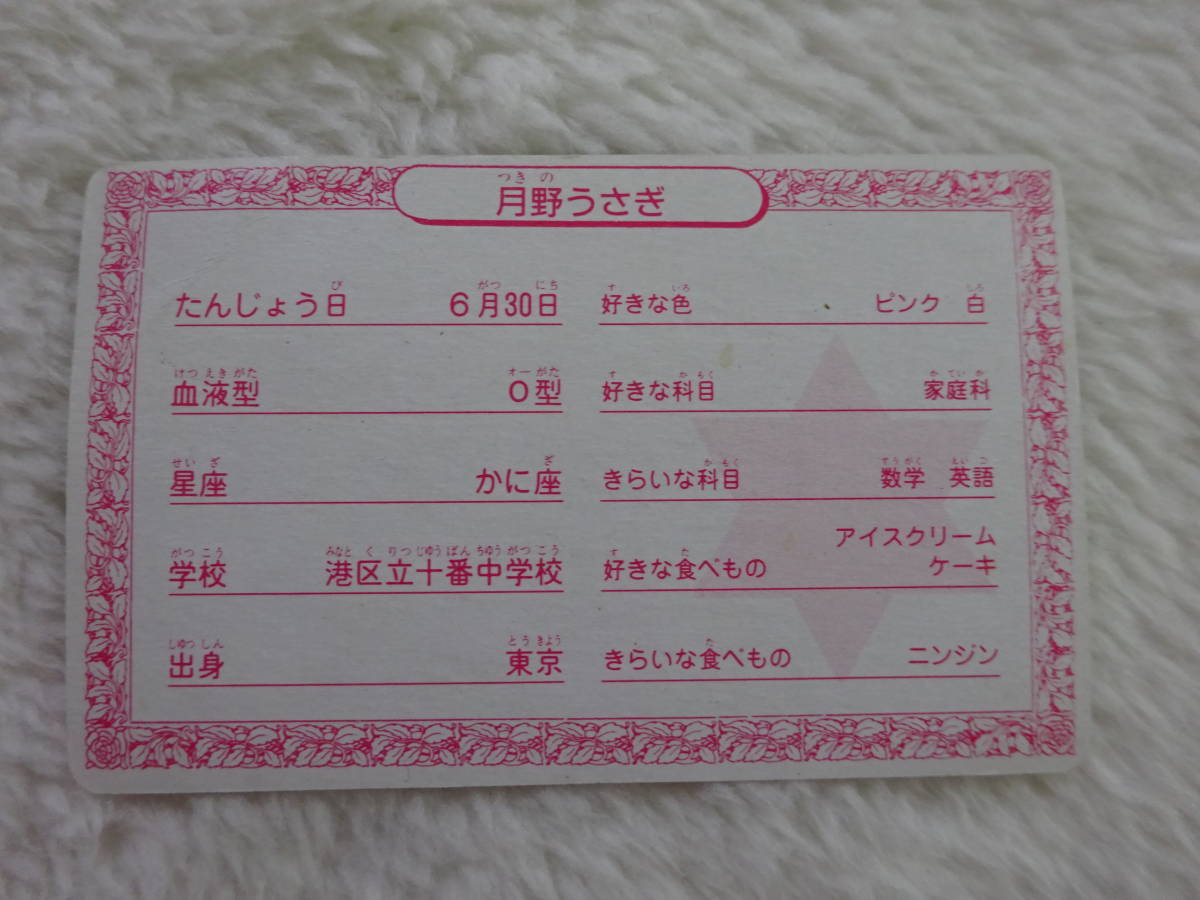 月野うさぎ
たんじょう日 6月30日
血液型 O型
星座 かに座
学校 港区立十番中学校
出身 東京
好きな色 ピンク 白
好きな科目 家庭科
きらいな科目 数学 英語
好きな食べもの アイスクリーム
ケーキ
きらいな食べもの ニンジン